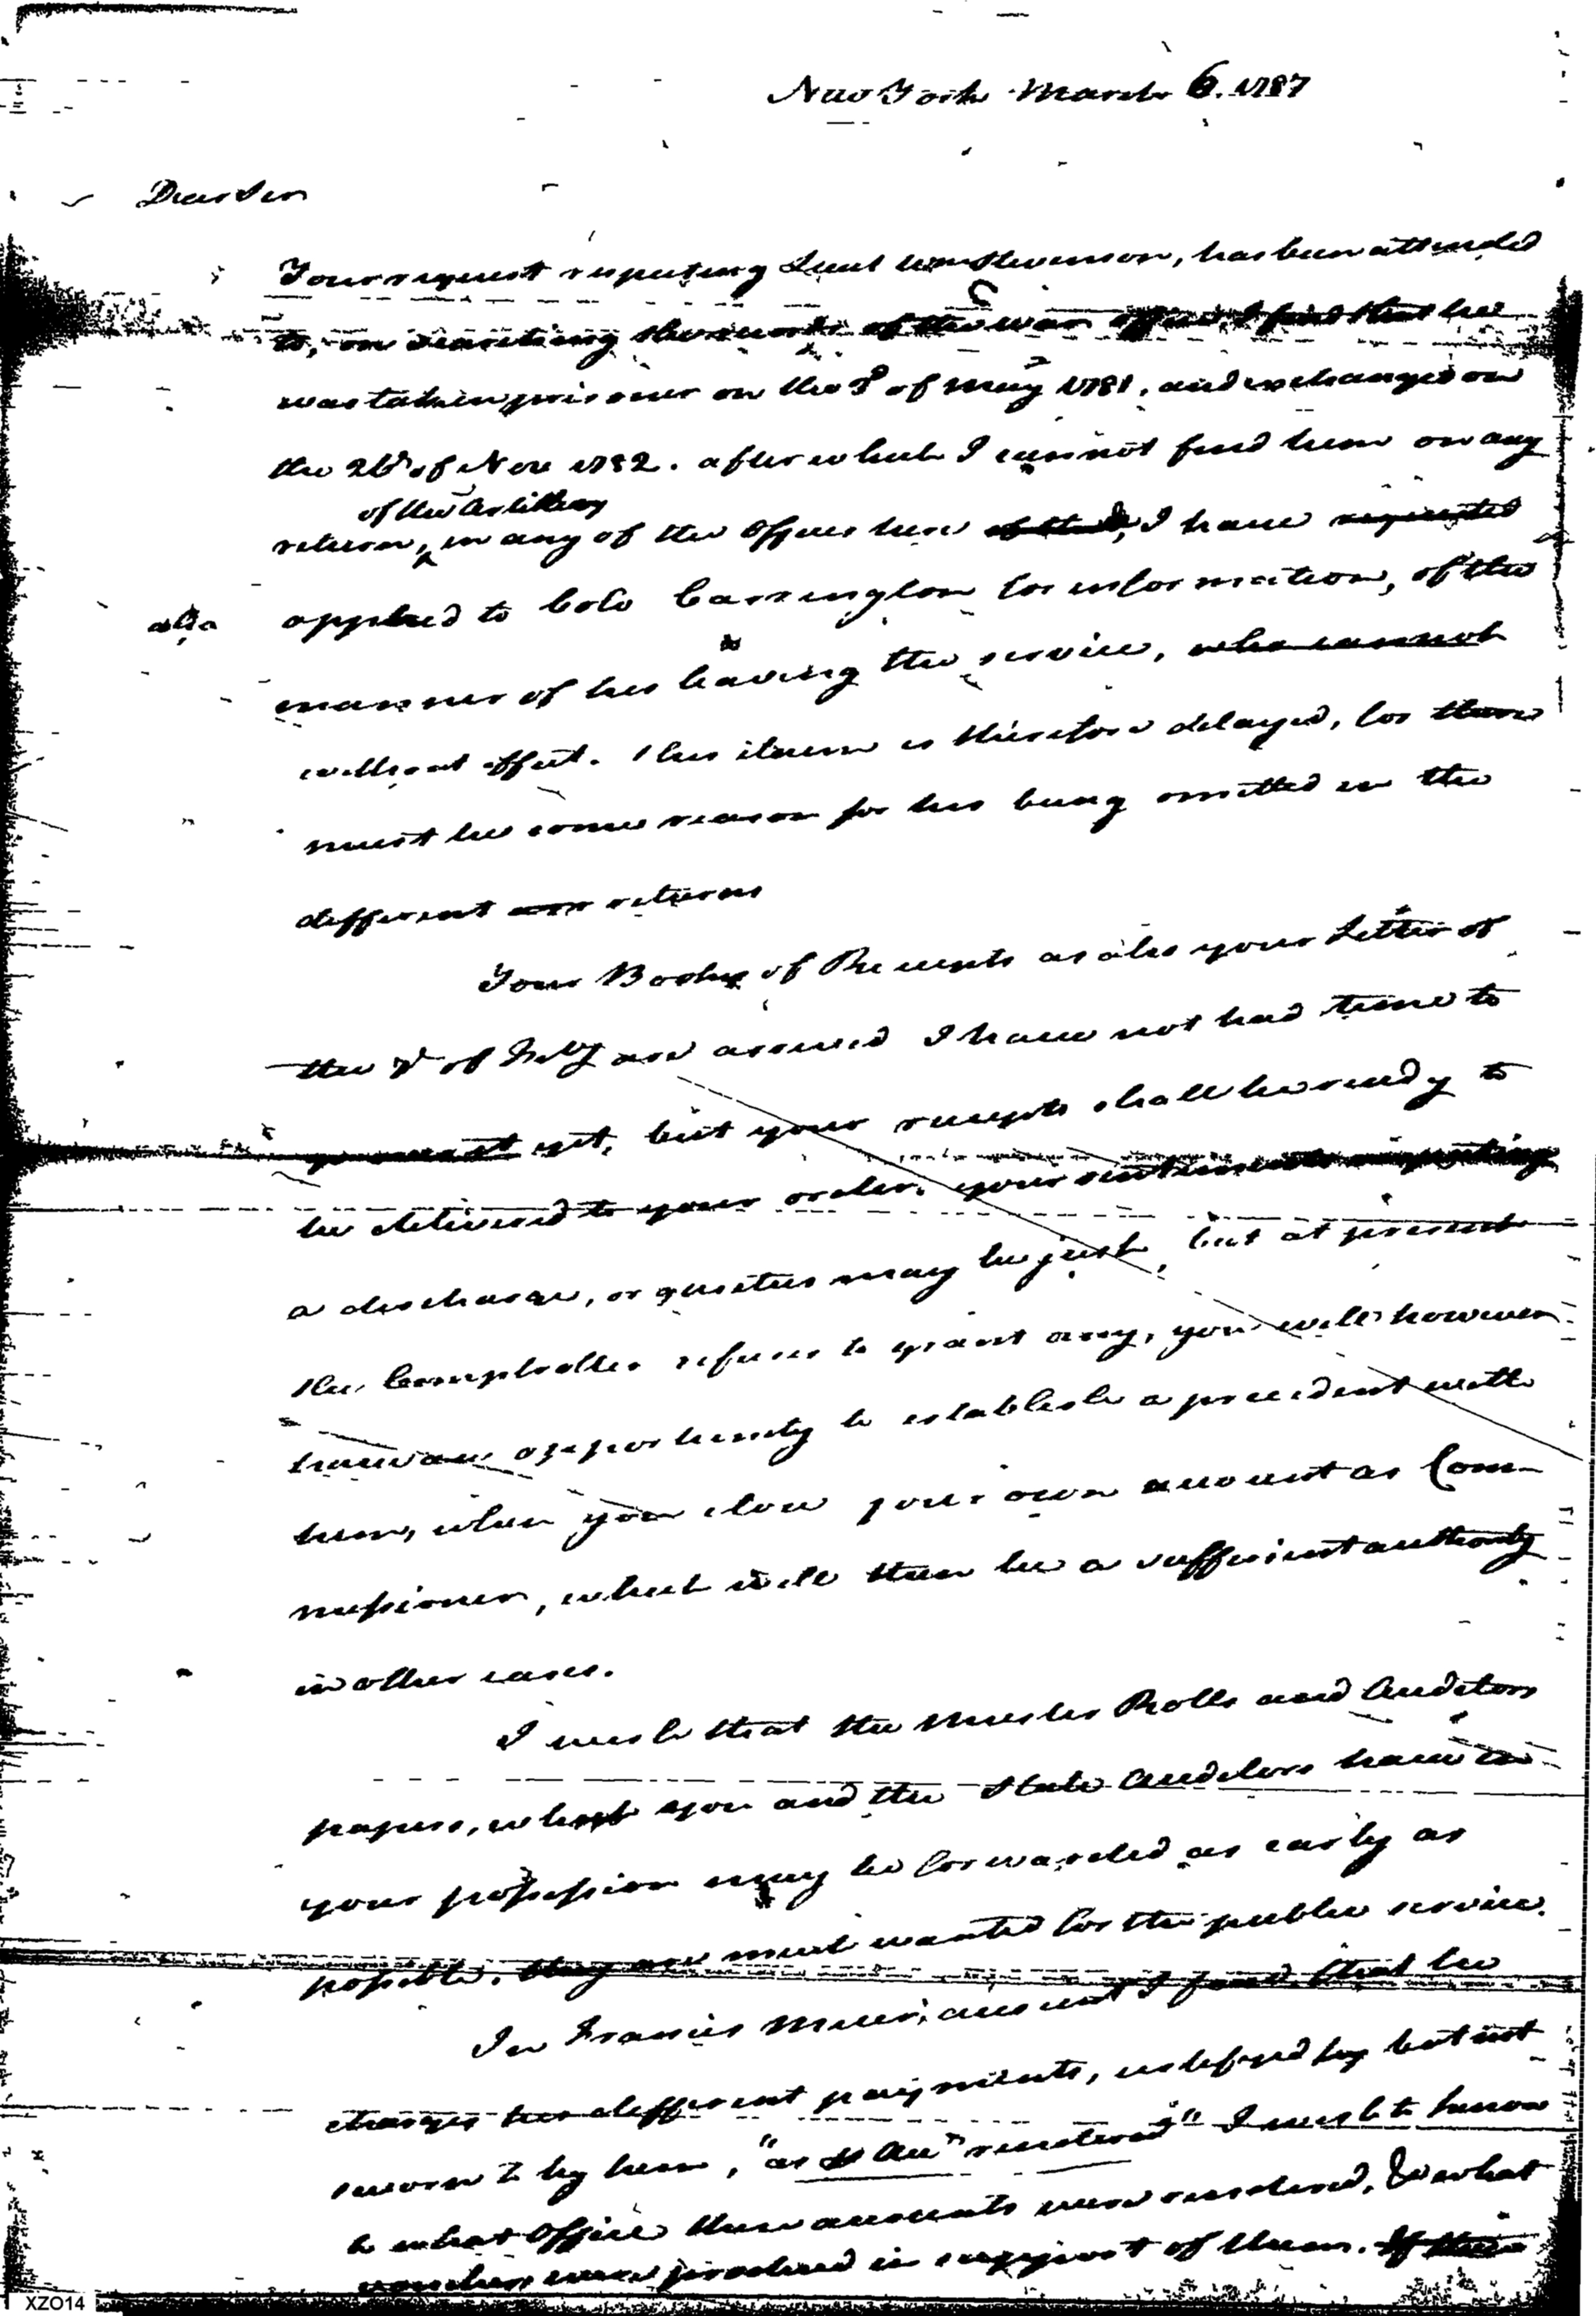 New York March 6. 1787
Dear Sir
Your request respecting Lieut Wm Stevenson, has been attended
to, on searching the records of the war office I find that he
was taken prisoner on the of May 1781, and exchanged on
the 26th of Nov 1782. after which I cannot find him on any
of the Artillery
return, in any of the Offices here I have requested
also applied to Colo Carrington for information, of the
manner of his leaving the service, who cannot
without effect. This claim is therefore delayed, for there
must be some reason for his being omitted in the
different returns
Your Books of Receipts as also your Letter of
the of Feby are arrived I have not had time to
yet, but your receipts shall be ready to
be delivered to your order. your sentiments respecting
a discharge, or quietus may be just, but at present
the Comptroller refuses to grant any, you will however
have an opportunity to establish a precedent with
him, when you close your own account as Com-
missioner, which will then be a sufficient authority
in other cases.
I wish that the Muster Rolls and Auditors
papers, which you and the State Auditors have in
your possession may be forwarded as early as
possible. they are much wanted for the public service.
In Francis Muir's account I find that he
charges his different payments, but not
sworn to by him, "as Acct rendered" I wish to know
to what Office these accounts were rendered, & what
vouchers were produced in support of them. If these
XZO14